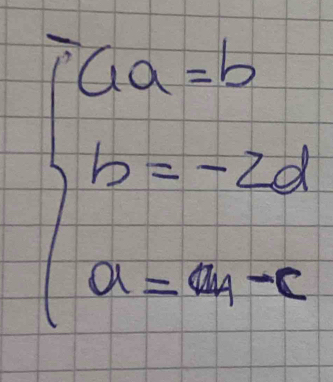 -Ga = b
b = -2d
a = -c